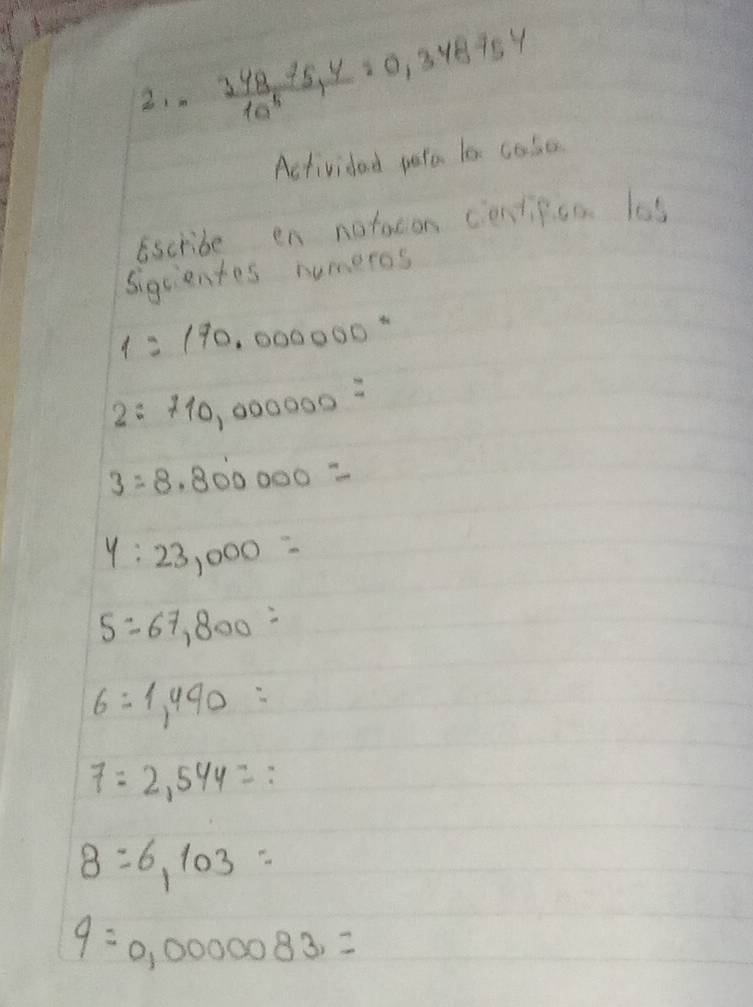 2.- 34875,4 = 0,348754
10⁵
Actividad para la casa
Escribe en notacion cientifica los
Sigcientes numeros
1 = 190.000000 =
2: 710,000000 =
3 = 8.800 000 =
4 : 23,000 =
5 = 67,800 =
6 = 1,490 =
7 = 2,544 = :
8 = 6,103 =
9 = 0,0000083. =